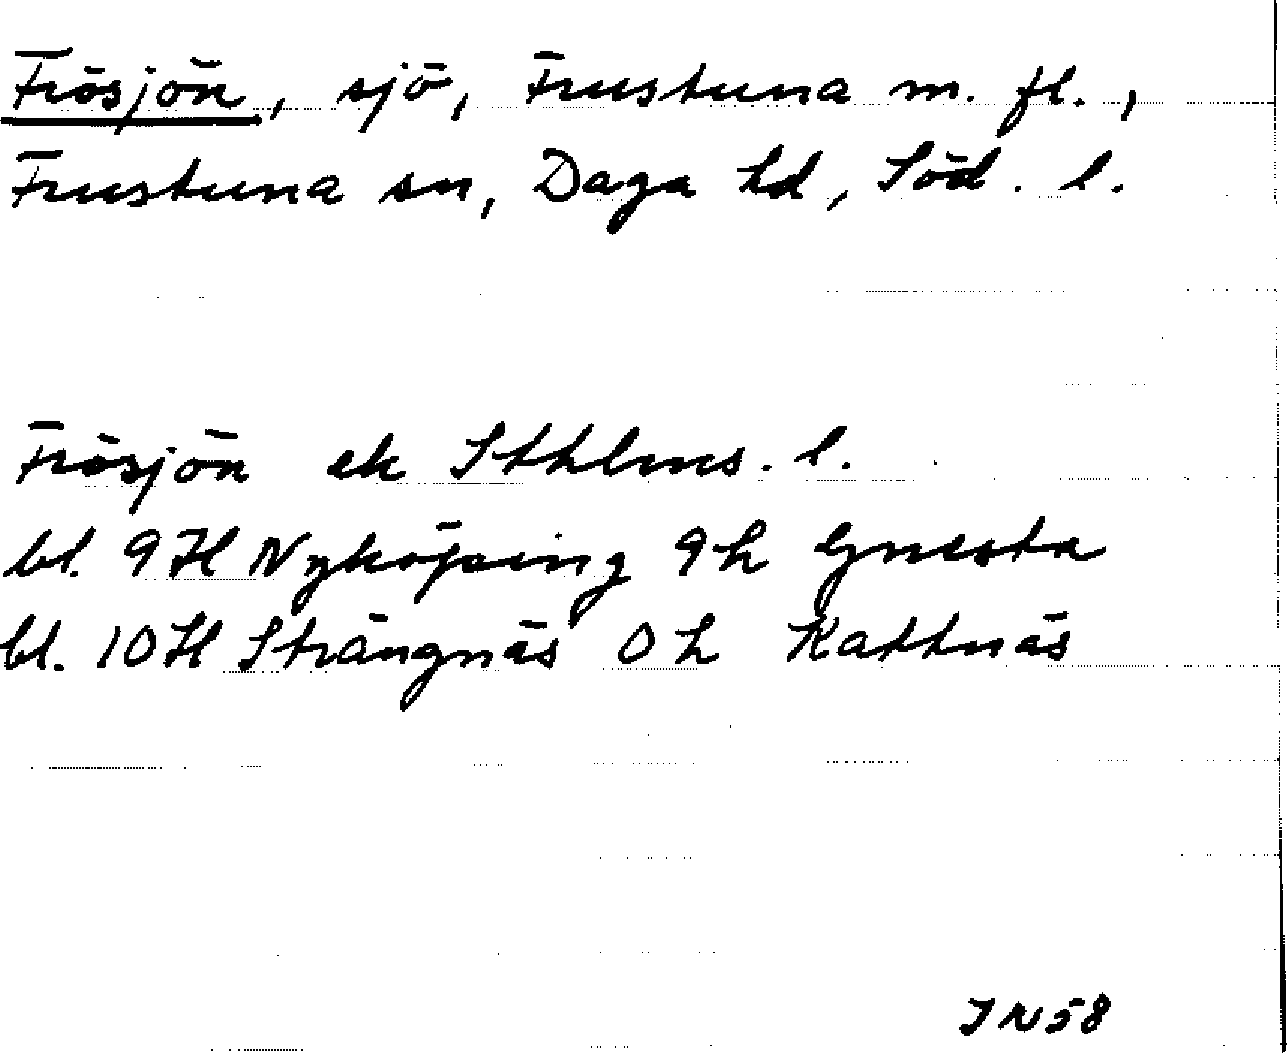 Frösjön, sjö, Frustuna m. fl.,
Frustuna sn, Daga hd, Söd. l.
Frösjön ek Sthlms. l.
bl. 9H Nyköping 9h Gnesta
bl. 10H Strängnäs 0h Kattnäs
IN58